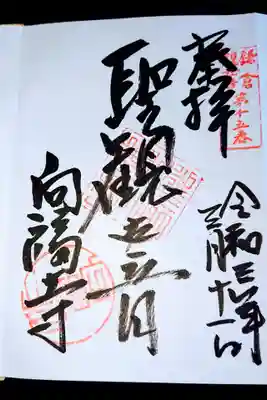 奉拝
令和三年
三月三十一日
聖観世音
向福寺
鎌倉
第十五番